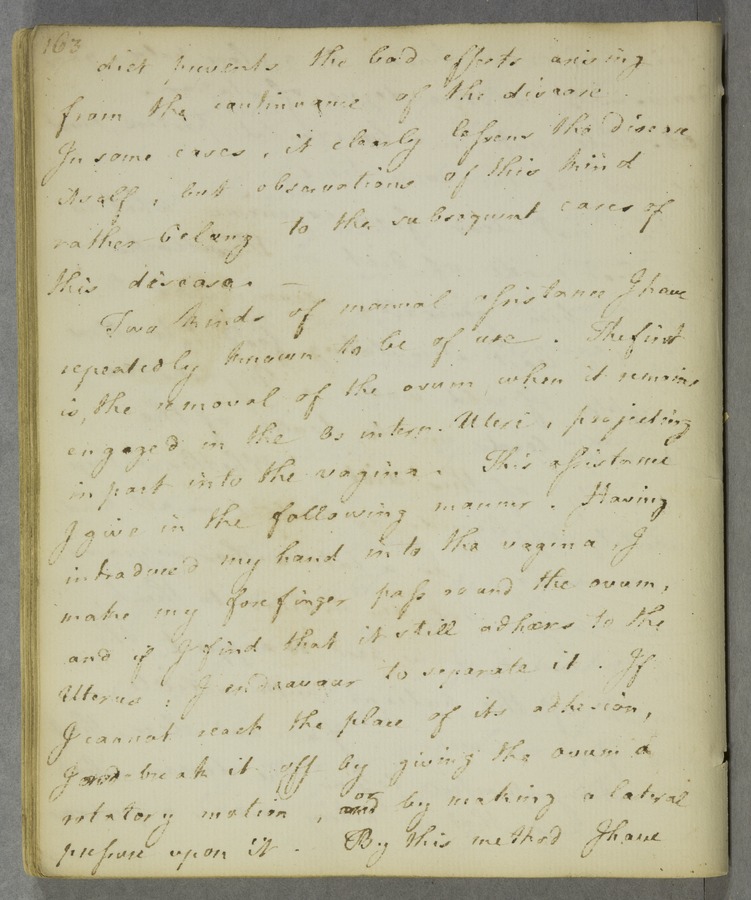 163
diet prevents the bad effects arising
from the continuance of the disease.
In some cases, it clearly lessens the disease
itself, but observations of this kind
rather belong to the subsequent cases of
this disease. —
Two kinds of manual assistance I have
repeatedly known to be of use. The first
is, the removal of the ovum, when it remains
engaged in the Os intern. Uteri, projecting
in part into the vagina. This assistance
I give in the following manner. Having
introduced my hand into the vagina, I
make my forefinger pass round the ovum,
and if I find that it still adheres to the
Uterus; I endeavour to separate it. If
I cannot reach the place of its adhesion,
I break it off by giving the ovum a
rotatory motion, or by making a lateral
pressure upon it. By this method I have